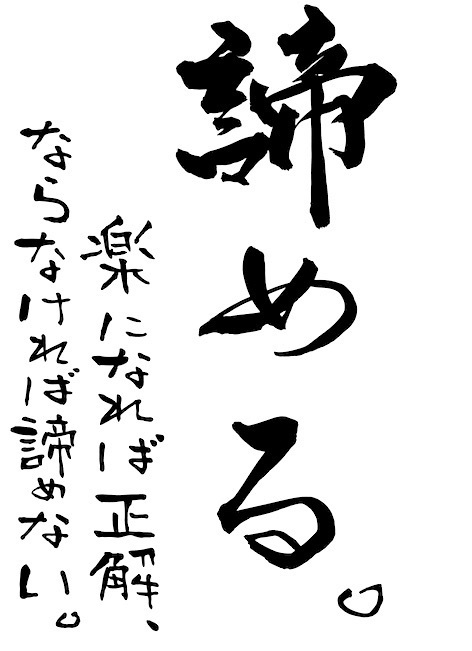 諦める。
楽になれば正解、
ならなければ諦めない。